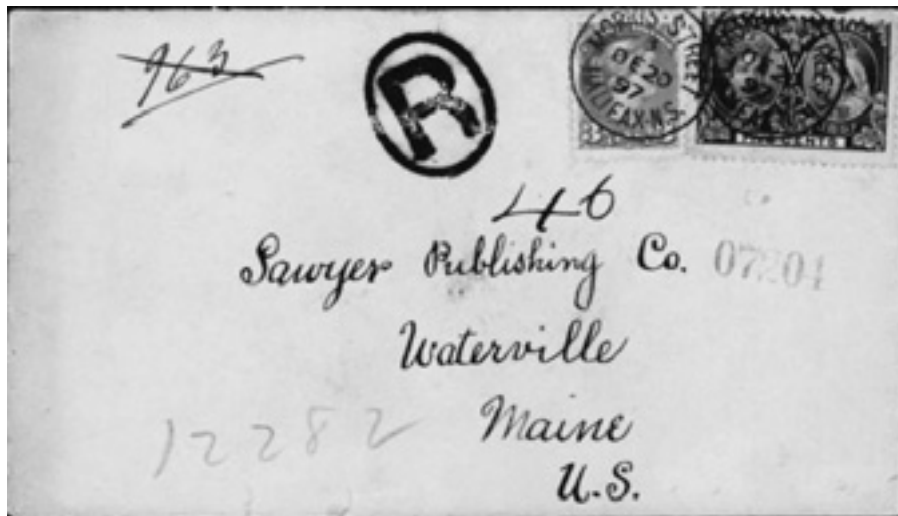 963
R
MORRIS STREET
DE 20
97
HALIFAX N.S.
DE 2
97
CENTS
46
Sawyer Publishing Co. 07204
Waterville
Maine
U.S.
12282